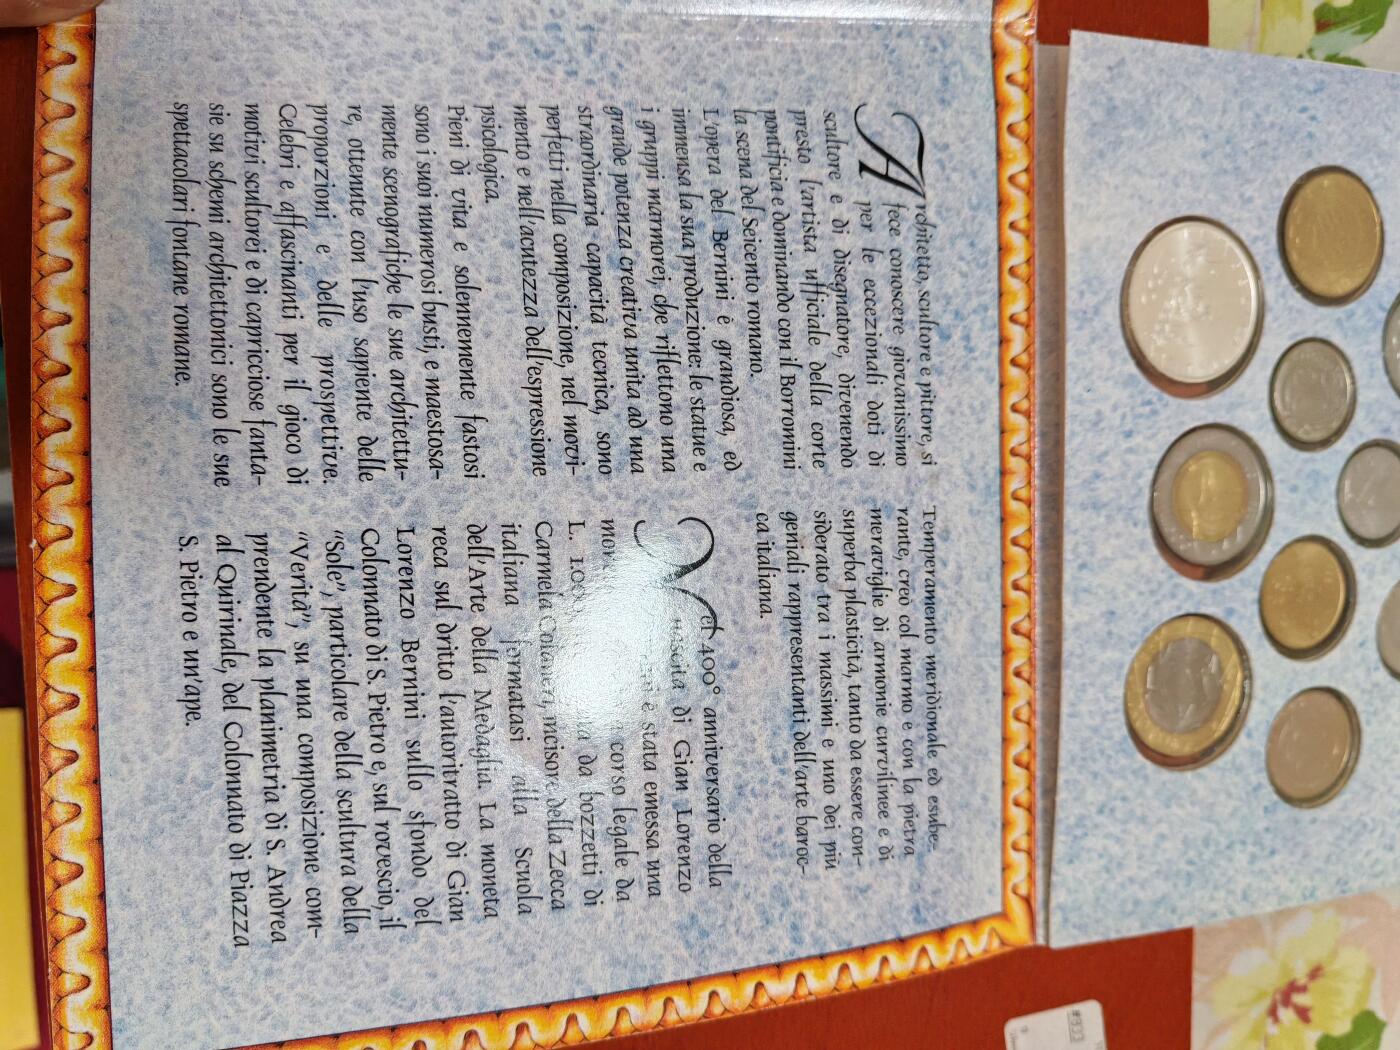 Architetto, scultore e pittore, si
fece conoscere giovanissimo
per le eccezionali doti di
scultore e di disegnatore, divenendo
presto l'artista ufficiale della corte
pontificia e dominando con il Borromini
la scena del Seicento romano.
L'opera del Bernini è grandiosa, ed
immensa la sua produzione: le statue e
i gruppi marmorei, che riflettono una
grande potenza creativa unita ad una
straordinaria capacità tecnica, sono
perfetti nella composizione, nel movi-
mento e nell'acutezza dell'espressione
psicologica.
Pieni di vita e solennemente fastosi
sono i suoi numerosi busti, e maestosa-
mente scenografiche le sue architettu-
re, ottenute con l'uso sapiente delle
proporzioni e delle prospettive.
Celebri e affascinanti per il gioco di
motivi scultorei e di capricciose fanta-
sie su schemi architettonici sono le sue
spettacolari fontane romane.
Temperamento meridionale ed esube-
rante, creò col marmo e con la pietra
meraviglie di armonie curvilinee e di
superba plasticità, tanto da essere con-
siderato tra i massimi e uno dei più
geniali rappresentanti dell'arte baroc-
ca italiana.
Nel 400° anniversario della
nascita di Gian Lorenzo
è stata emessa una
corso legale da
L. da bozzetti di
Carmela Colaneri, incisore della Zecca
italiana formatasi alla Scuola
dell'Arte della Medaglia. La moneta
reca sul dritto l'autoritratto di Gian
Lorenzo Bernini sullo sfondo del
Colonnato di S. Pietro e, sul rovescio, il
"Sole", particolare della scultura della
"Verità", su una composizione com-
prendente la planimetria di S. Andrea
al Quirinale, del Colonnato di Piazza
S. Pietro e un'ape.